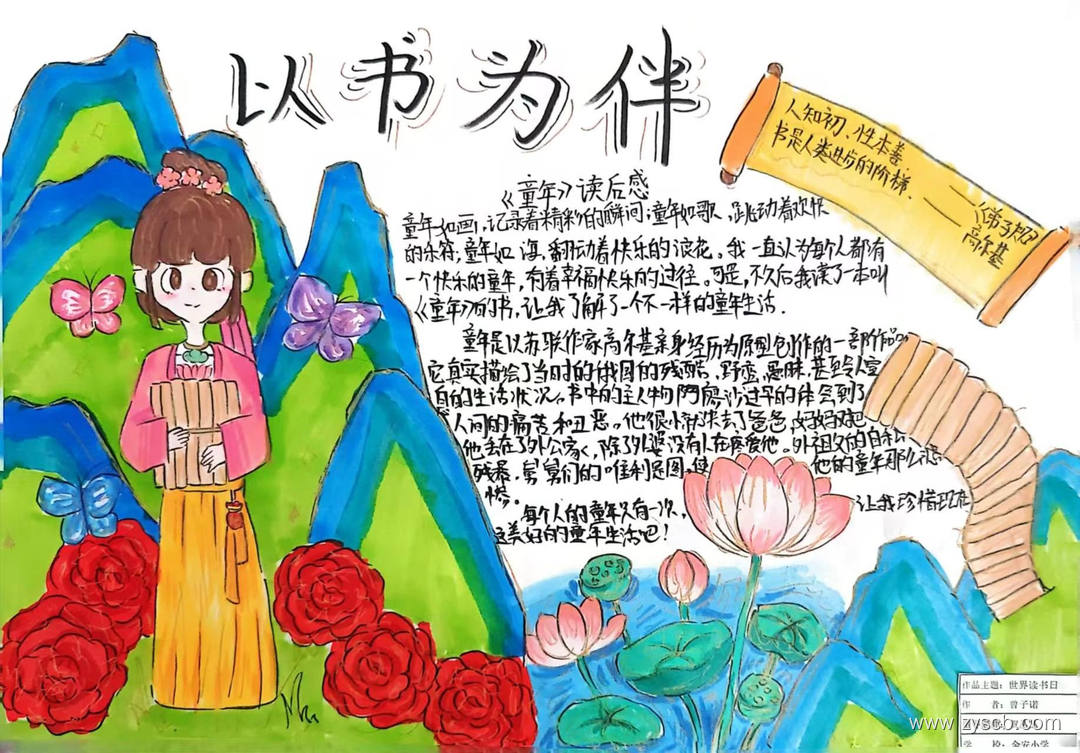 以书为伴
人知初、性本善
书是人类进步的阶梯.
——《弟子规》
——高尔基
《童年》读后感
童年如画,记录着精彩的瞬间;童年如歌,跳动着欢快
的乐符;童年如海,翻动着快乐的浪花。我一直认为每个人都有
一个快乐的童年,有着幸福快乐的过往。可是,不久后我读了一本叫
《童年》的书,让我了解了一个不一样的童年生活.
童年是以苏联作家高尔基亲身经历为原型创作的一部作品
它真实描绘了当时的俄国的残酷,野蛮,愚昧,甚至令人窒
息的生活状况。书中的主人物阿廖沙过早的体会到了
人间的痛苦和丑恶。他很小就失去了爸爸,妈妈把
他丢在了外公家,除了外婆没有人在疼爱他。外祖父的自私
残暴,舅舅们的唯利是图,使
他的童年那么悲
惨。
每个人的童年只有一次,
让我珍惜现在
这美好的童年生活吧!
作品主题:世界读书日
作 者:曾子诺
学 校:金安小学
www.zyscb.com